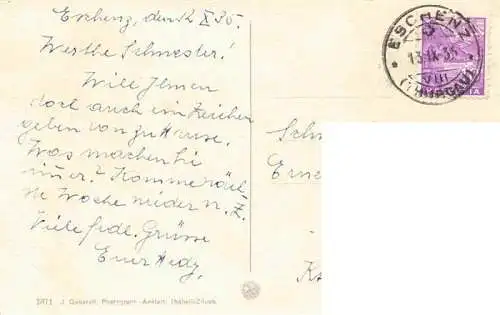 Eschenz, den 12. IX 35.
Werthe Schwester!
Will Ihnen
doch auch ein Zeichen
geben von zu Hause.
Was machen Sie
immer? Komme näch-
ste Woche wieder n. Z.
Viele frdl. Grüsse
Euer Hedy.
ESCHENZ
13.IX.35
VIII
(THURGAU)
Schw
Erne
K
5071 J. Gaberell, Photograph-Anstalt, Thalwil-Zürich